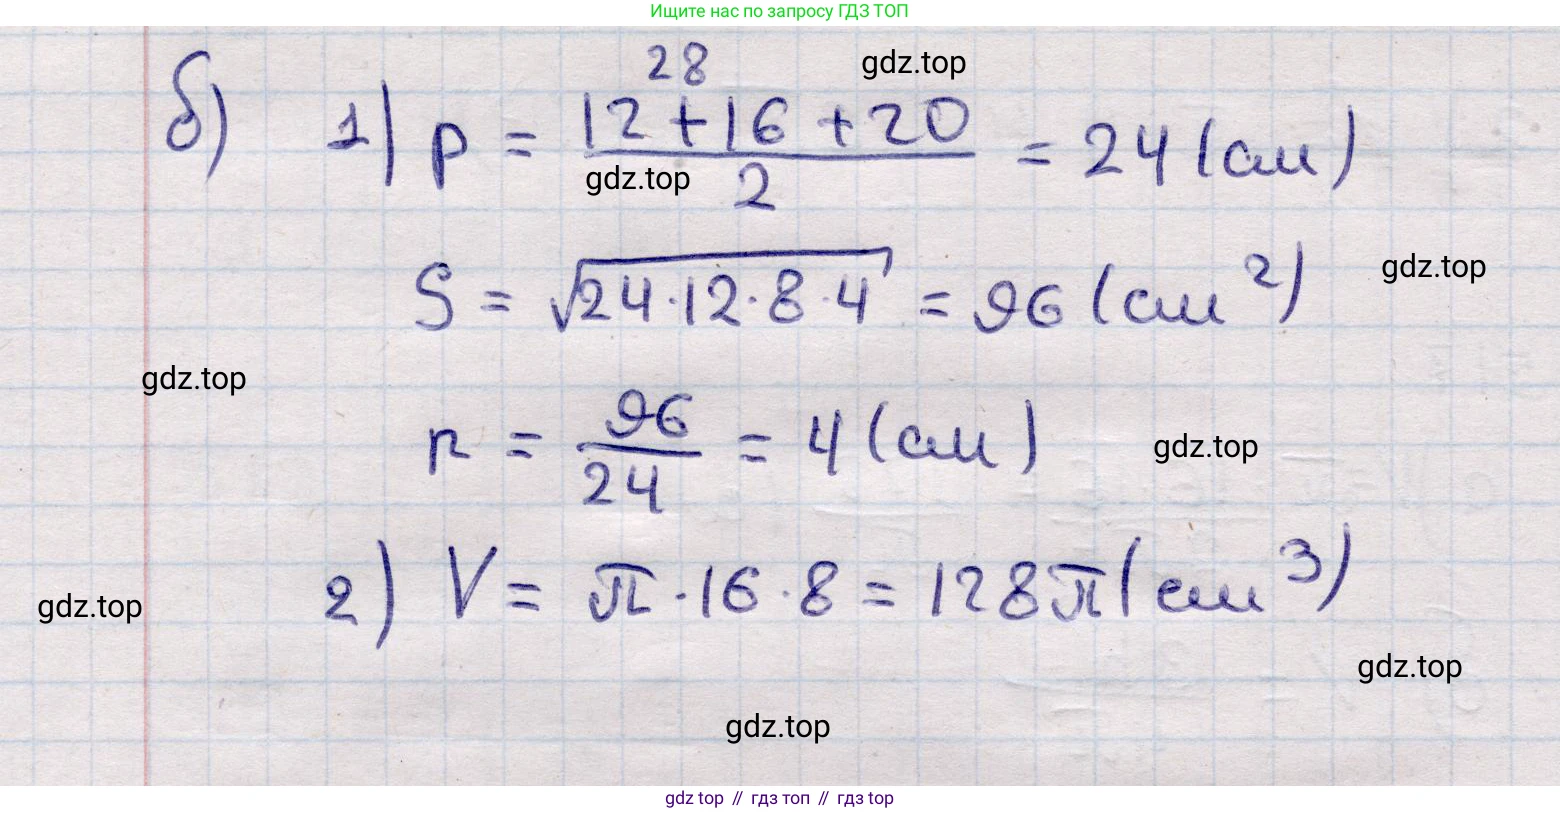 Ищите нас по запросу ГДЗ ТОП
28
gdz.top
б) 1) p = (12 + 16 + 20) / 2 = 24 (см)
gdz.top
S = √(24·12·8·4) = 96 (см²)
gdz.top
gdz.top
r = 96 / 24 = 4 (см)
gdz.top
2) V = π · 16 · 8 = 128π (см³)
gdz.top
gdz.top
gdz.top
gdz top // гдз топ // гдз top